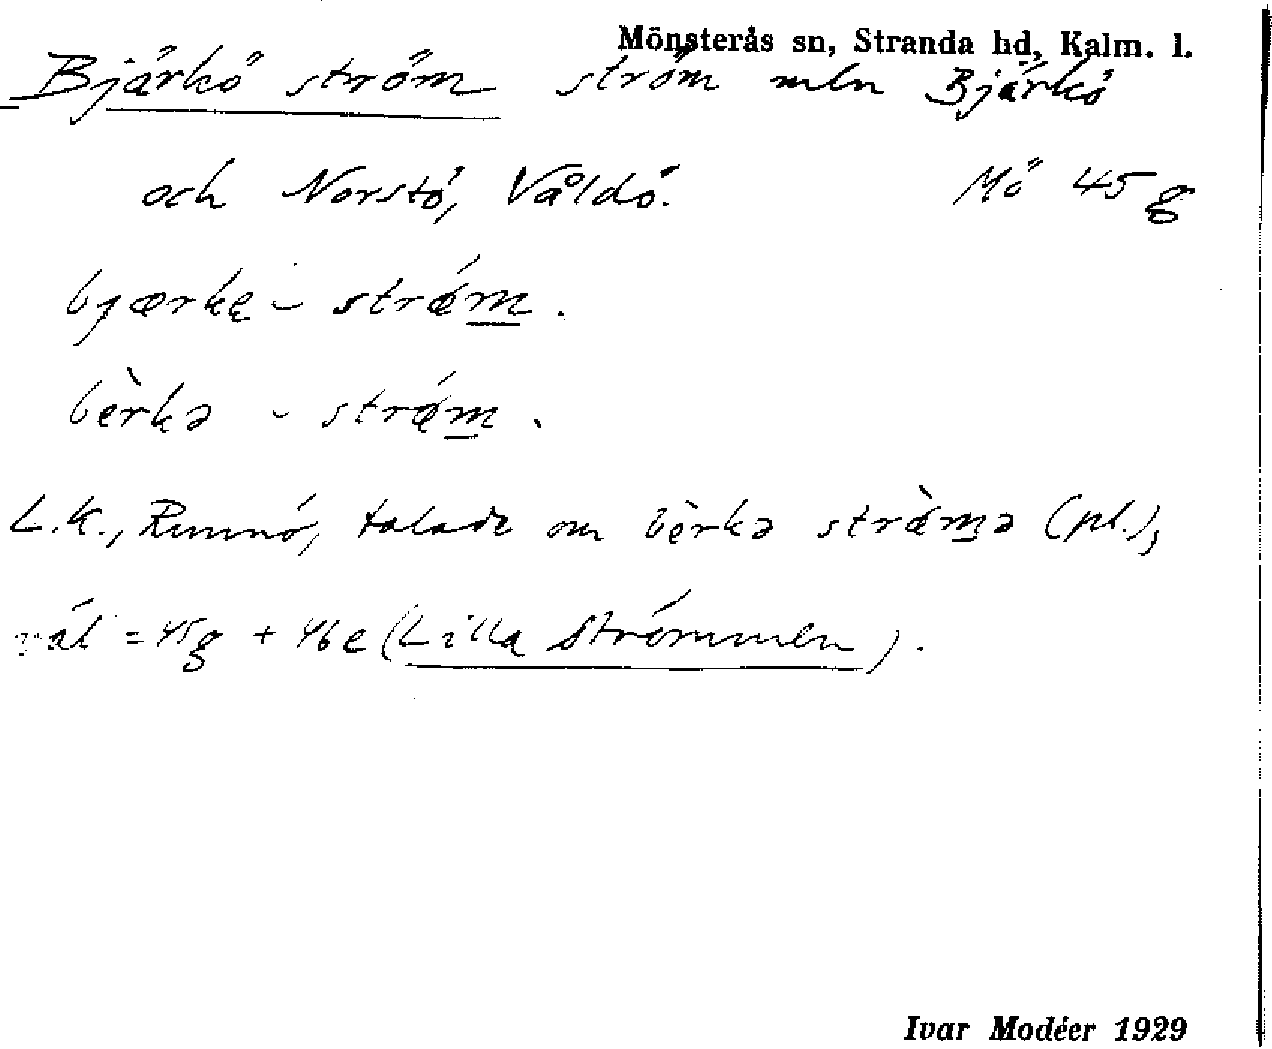 Mönsterås sn, Stranda hd, Kalm. l.
Björkö ström ström mln Björkö
och Norstö, Våldö. Mö 45 g
bjærkę - strǿm.
bèrkə - strǿm.
L.K., Runnö, talade om bèrkə strø̀mə (pl.),
väl = 45g + 46e (Lilla Strömmen).
Ivar Modéer 1929